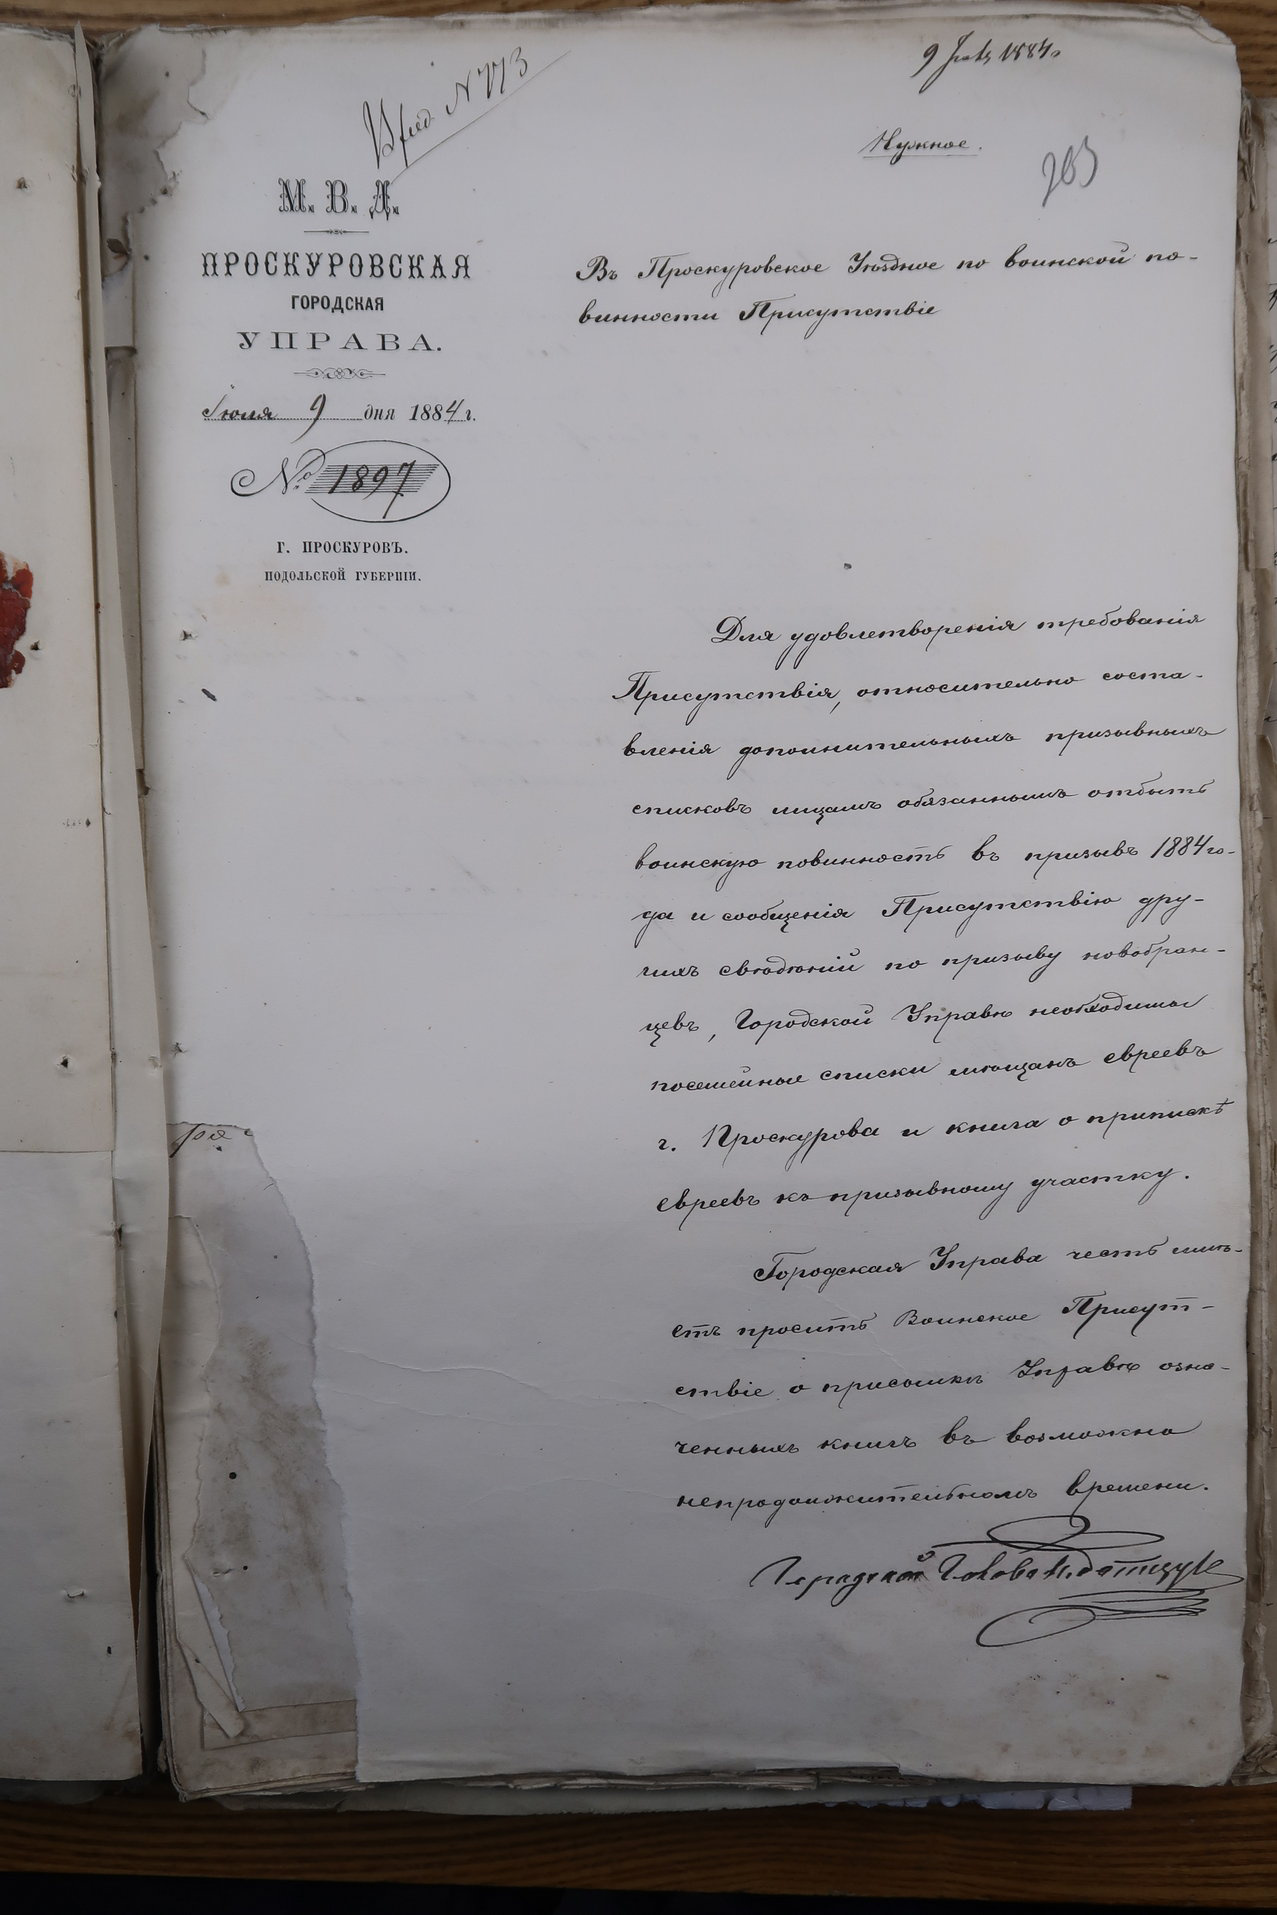 9 Іюля 1884 г
№ 773
Нужное.
203
М. В. Д.
ПРОСКУРОВСКАЯ
ГОРОДСКАЯ
УПРАВА.
Іюля 9 дня 1884 г.
№ 1897
Г. ПРОСКУРОВЪ.
ПОДОЛЬСКОЙ ГУБЕРНІИ.
Въ Проскуровское Уѣздное по воинской по-
винности Присутствіе
Для удовлетворенія требованія
Присутствія, относительно соста-
вленія дополнительныхъ призывныхъ
списковъ лицамъ обязаннымъ отбыть
воинскую повинность въ призывъ 1884 го-
да и сообщенія Присутствію дру-
гихъ свѣдѣній по призыву новобран-
цевъ, Городской Управѣ необходимы
посемейные списки мѣщанъ евреевъ
г. Проскурова и книга о припискѣ
евреевъ къ призывному участку.
Городская Управа честь имѣ-
етъ просить Воинское Присут-
ствіе о присылкѣ Управѣ озна-
ченныхъ книгъ въ возможно
непродолжительномъ времени.
Городской Голова